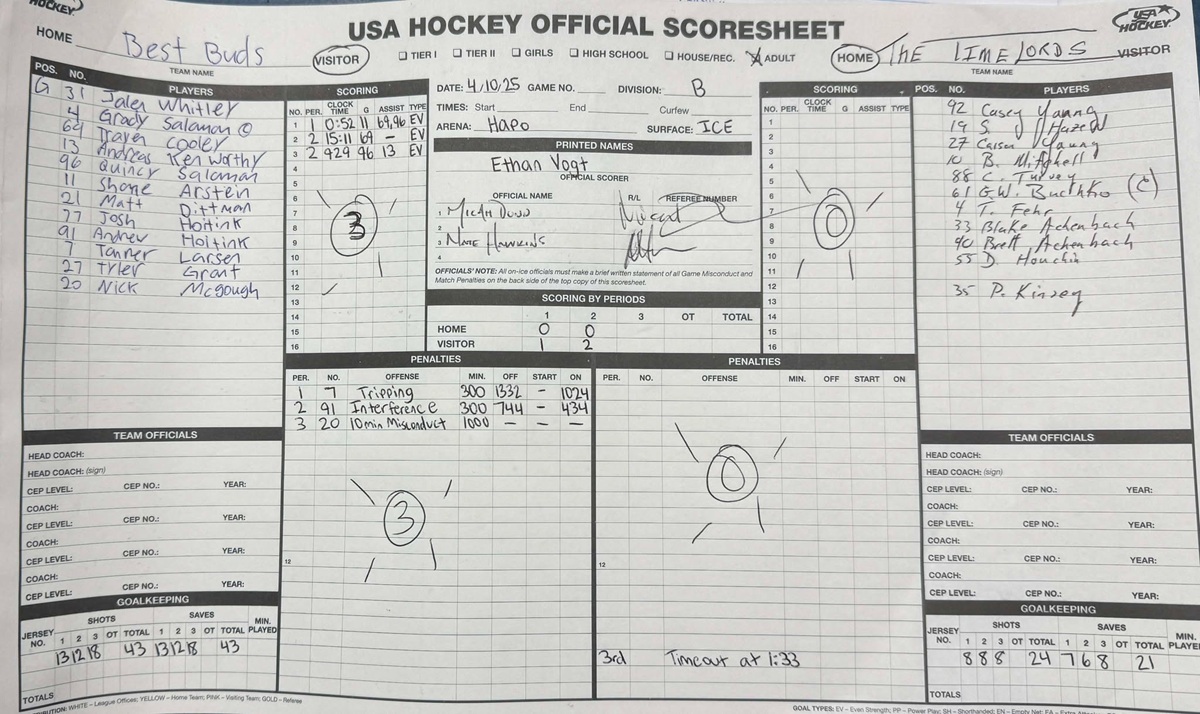 HOCKEY
USA HOCKEY OFFICIAL SCORESHEET
USA HOCKEY
HOME Best Buds VISITOR
TEAM NAME
TIER I TIER II GIRLS HIGH SCHOOL HOUSE/REC. ADULT
HOME THE LIMELORDS VISITOR
TEAM NAME
POS. NO. PLAYERS
G 31 Jalen Whitley
4 Grady Salaman C
69 Traven Cooley
13 Andreas Kenworthy
96 Quincy Salaman
11 Shane Arstein
21 Matt Dittman
77 Josh Hoitink
91 Andrew Hoitink
7 Tanner Larsen
27 Tyler Grant
20 Nick McGough
SCORING
NO. PER. CLOCK TIME G ASSIST TYPE
1 1 0:52 11 69,96 EV
2 2 15:11 69 - EV
3 2 929 96 13 EV
4
5
6
7
8
9
10
11
12
13
14
15
16
3
DATE: 4/10/25 GAME NO. DIVISION: B
TIMES: Start End Curfew
ARENA: Hapo SURFACE: ICE
PRINTED NAMES
Ethan Vogt
OFFICIAL SCORER
OFFICIAL NAME R/L REFEREE NUMBER
1
2
3 Nate Hawkins
4
OFFICIALS' NOTE: All on-ice officials must make a brief written statement of all Game Misconduct and
Match Penalties on the back side of the top copy of this scoresheet.
SCORING BY PERIODS
1 2 3 OT TOTAL
HOME 0 0
VISITOR 1 2
SCORING
NO. PER. CLOCK TIME G ASSIST TYPE
1
2
3
4
5
6
7
8
9
10
11
12
13
14
15
16
0
POS. NO. PLAYERS
92 Casey Young
19 S. Hazel
27 Carson Young
10 B. Mitchell
88 C. Turvey
61 G.W. (C)
4 T. Fehr
33 Blake Achenbach
90 Brett Achenbach
55 D. Houchin
35 P. Kinsey
PENALTIES
PER. NO. OFFENSE MIN. OFF START ON
1 7 Tripping 300 1332 - 1024
2 91 Interference 300 744 - 434
3 20 10min Misconduct 1000 - - -
3
12
PENALTIES
PER. NO. OFFENSE MIN. OFF START ON
0
12
3rd Timeout at 1:33
TEAM OFFICIALS
HEAD COACH:
HEAD COACH: (sign)
CEP LEVEL: CEP NO.: YEAR:
COACH:
CEP LEVEL: CEP NO.: YEAR:
COACH:
CEP LEVEL: CEP NO.: YEAR:
COACH:
CEP LEVEL: CEP NO.: YEAR:
GOALKEEPING
SHOTS SAVES
JERSEY NO. 1 2 3 OT TOTAL 1 2 3 OT TOTAL MIN. PLAYED
13 12 18 43 13 12 18 43
TOTALS
TEAM OFFICIALS
HEAD COACH:
HEAD COACH: (sign)
CEP LEVEL: CEP NO.: YEAR:
COACH:
CEP LEVEL: CEP NO.: YEAR:
COACH:
CEP LEVEL: CEP NO.: YEAR:
COACH:
CEP LEVEL: CEP NO.: YEAR:
GOALKEEPING
SHOTS SAVES
JERSEY NO. 1 2 3 OT TOTAL 1 2 3 OT TOTAL MIN. PLAYE
8 8 8 24 7 6 8 21
TOTALS
WHITE – League Offices; YELLOW – Home Team; PINK – Visiting Team; GOLD – Referee
GOAL TYPES: EV – Even Strength; PP – Power Play; SH – Shorthanded; EN – Empty Net;